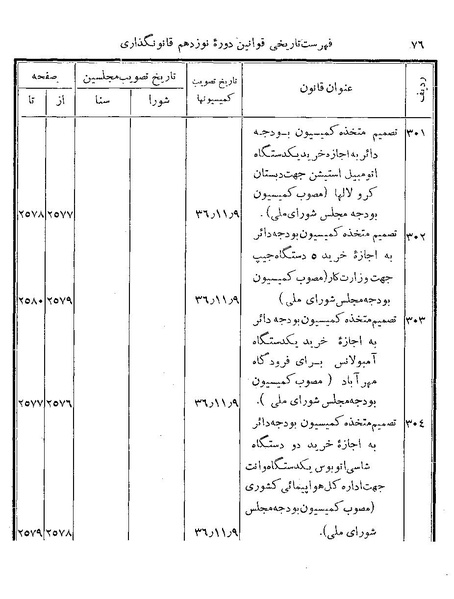 ۷۶ فهرست تاریخی قوانین دورهٔ نوزدهم قانونگذاری
ردیف عنوان قانون تاریخ تصویب کمیسیونها تاریخ تصویب مجلسین صفحه
شورا سنا از تا
۳۰۱ تصمیم متخذه کمیسیون بودجه
دائر به اجازه خرید یکدستگاه
اتومبیل استیشن جهت دبستان
کر و لالها (مصوب کمیسیون
بودجه مجلس شورای ملی). ۳۶٫۱۱٫۹ ۲۵۷۷ ۲۵۷۸
۳۰۲ تصمیم متخذه کمیسیون بودجه دائر
به اجازهٔ خرید ۵ دستگاه جیپ
جهت وزارت کار (مصوب کمیسیون
بودجه مجلس شورای ملی) ۳۶٫۱۱٫۹ ۲۵۷۹ ۲۵۸۰
۳۰۳ تصمیم متخذه کمیسیون بودجه دائر
به اجازهٔ خرید یکدستگاه
آمبولانس برای فرودگاه
مهرآباد (مصوب کمیسیون
بودجه مجلس شورای ملی). ۳۶٫۱۱٫۹ ۲۵۷۶ ۲۵۷۷
۳۰۴ تصمیم متخذه کمیسیون بودجه دائر
به اجازهٔ خرید دو دستگاه
شاسی اتوبوس یکدستگاه وانت
جهت اداره کل هواپیمائی کشوری
(مصوب کمیسیون بودجه مجلس
شورای ملی). ۳۶٫۱۱٫۹ ۲۵۷۸ ۲۵۷۹